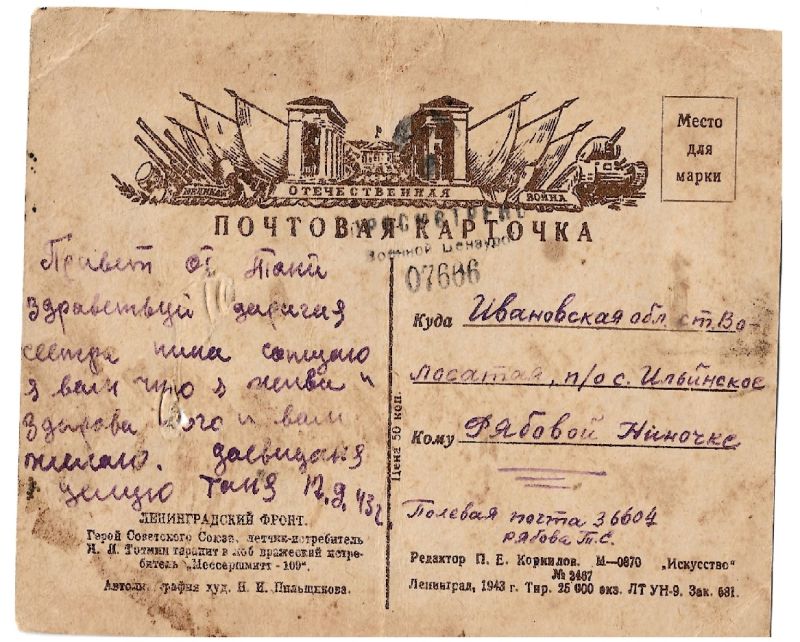 ВЕЛИКАЯ ОТЕЧЕСТВЕННАЯ ВОЙНА
Место
для
марки
ПОЧТОВАЯ КАРТОЧКА
ПРОСМОТРЕНО
Военной Цензурой
07686
Привет от Тани
Здравствуй дарагая
сестра нина сопщаю
я вам что я жива и
здарова чого и вам
желаю. досвиданя
целую Таня 12.9.43г
ЛЕНИНГРАДСКИЙ ФРОНТ.
Герой Советского Союза, летчик-истребитель
И. Л. Тотмин таранит в лоб вражеский истре-
битель „Мессершмитт - 109“.
Автолитография худ. И. И. Пильщикова.
Цена 50 коп.
Куда Ивановская обл. ст. Во-
лосатая, п/о с. Ильинское
Кому Рябовой Ниночке
Полевая почта 36604
рябова Т.С.
Редактор П. Е. Корнилов. М—0870 „Искусство“
№ 2487
Ленинград, 1943 г. Тир. 25 000 экз. ЛТ УН-9. Зак. 681.